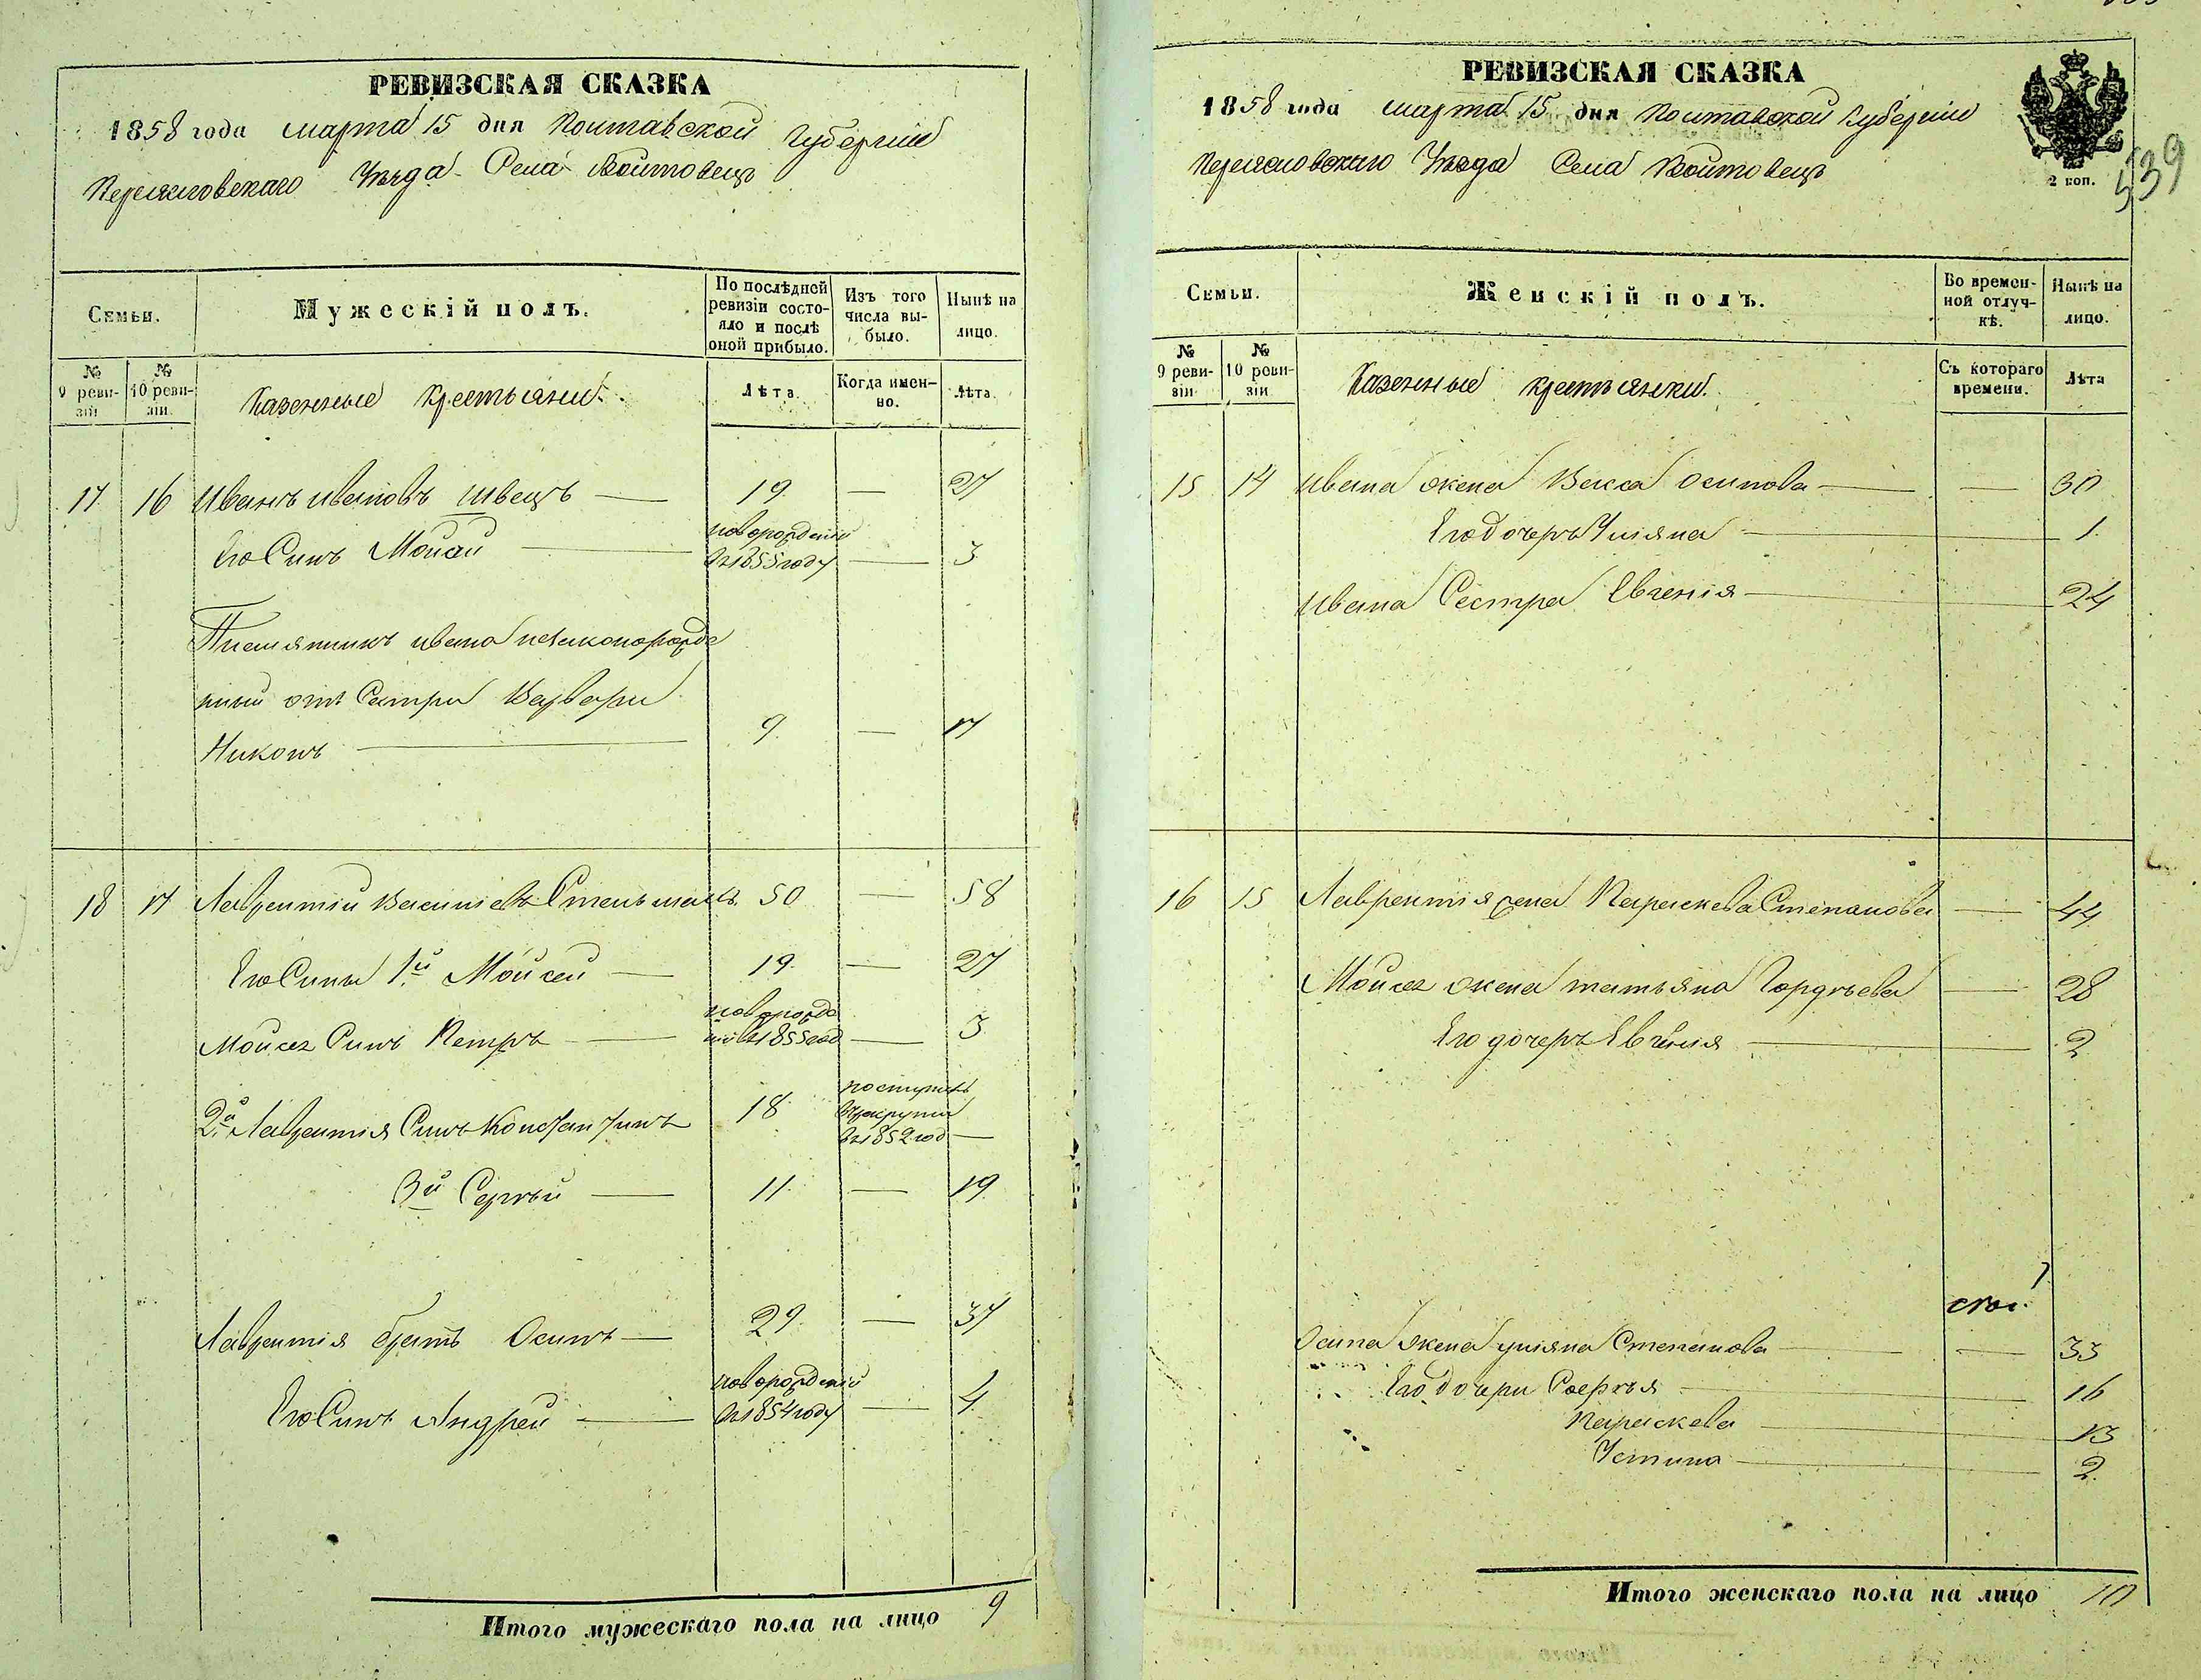 РЕВИЗСКАЯ СКАЗКА
1858 года марта 15 дня Полтавской Губернии
Переяславского Уѣзда Села Войтовецъ
Семьи.
Мужескій полъ.
По послѣдней ревизіи состояло и послѣ оной прибыло.
Изъ того числа выбыло.
Нынѣ на лицо.
№ 9 ревизіи
№ 10 ревизіи.
Казенные крестьяни.
Лѣта.
Когда именно.
Лѣта.
17 16 Иванъ Ивановъ Швецъ — 19. — 27
Его Синъ Мойсѣй — новорожденій въ 1855 году — 3
Племянникъ Ивана незаконорожде
нный отъ Сестри Варвари
Никонъ — 9. — 17
18 17 Лаврентій Василіевъ Стельмахъ 50 — 58
Его Сины 1й Мойсей — 19. — 27
Мойсея Синъ Петръ — новорожде ній въ 1855 год — 3
2й Лаврентія Синъ Константинъ 18 поступилъ въ рекруты въ 1852 год —
3й Сергѣй — 11. — 19.
Лаврентія братъ Осипъ — 29. — 37
Его Синъ Андрей — новорожденій въ 1854 году — 4
Итого мужескаго пола на лицо 9
РЕВИЗСКАЯ СКАЗКА
1858 года марта 15 дня Полтавской Губерніи
Переяславского Уѣзда Села Войтовецъ
2 коп.
539
Семьи.
Женскій полъ.
Во временной отлучкѣ.
Нынѣ на лицо.
№ 9 ревизіи
№ 10 ревизіи
Казенные крестьянки.
Съ котораго времени.
Лѣта
15 14 Ивана жена Васса Осипова — — 30
Его дочерь Уліяна — 1.
Ивана Сестра Евгенія — 24
16 15 Лаврентія жена Параскева Степанова — 44
Мойсея жена татьяна Гордѣева — 28
Его дочерь Евгенія — 2
Осипа жена уліяна Степанова — — 33
Его дочери Софія — 16
Параскева — 13
Устина — 2
Итого женскаго пола на лицо 10